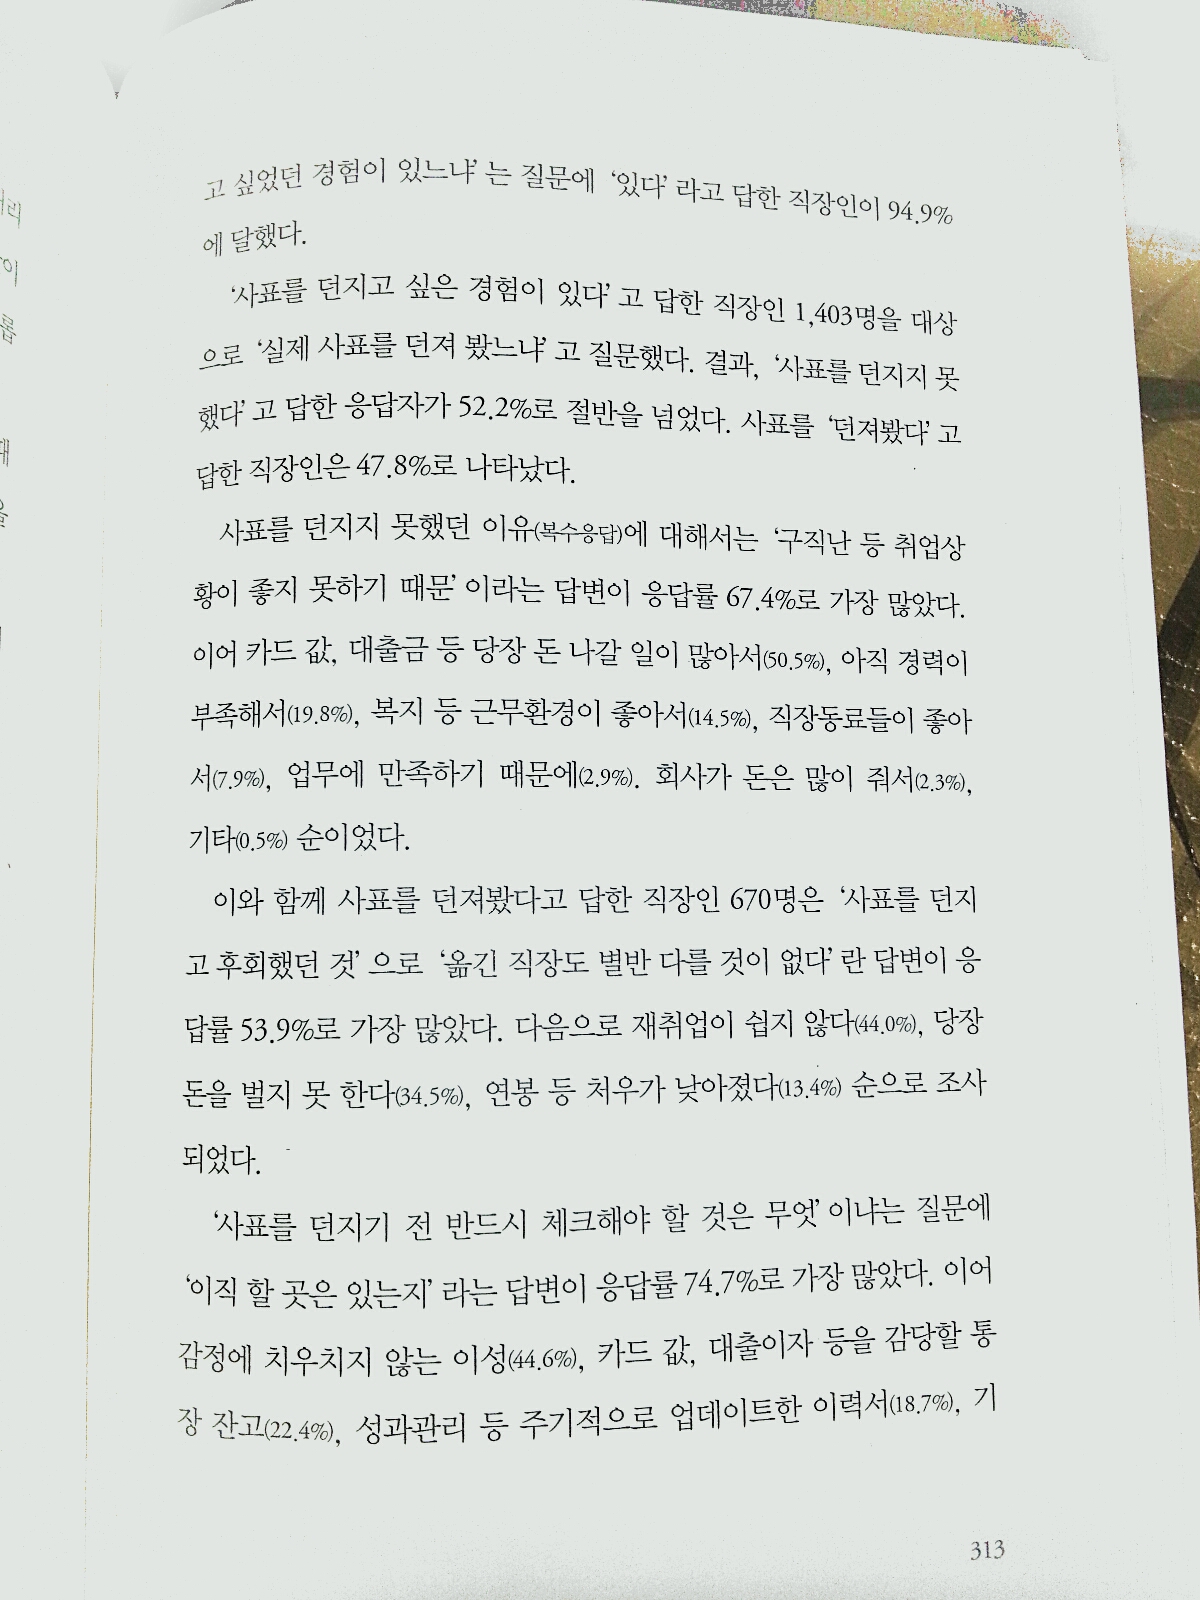 고 싶었던 경험이 있느냐’는 질문에 ‘있다’라고 답한 직장인이 94.9%
에 달했다.
‘사표를 던지고 싶은 경험이 있다’고 답한 직장인 1,403명을 대상
으로 ‘실제 사표를 던져 봤느냐’고 질문했다. 결과, ‘사표를 던지지 못
했다’고 답한 응답자가 52.2%로 절반을 넘었다. 사표를 ‘던져봤다’고
답한 직장인은 47.8%로 나타났다.
사표를 던지지 못했던 이유(복수응답)에 대해서는 ‘구직난 등 취업상
황이 좋지 못하기 때문’이라는 답변이 응답률 67.4%로 가장 많았다.
이어 카드 값, 대출금 등 당장 돈 나갈 일이 많아서(50.5%), 아직 경력이
부족해서(19.8%), 복지 등 근무환경이 좋아서(14.5%), 직장동료들이 좋아
서(7.9%), 업무에 만족하기 때문에(2.9%). 회사가 돈은 많이 줘서(2.3%),
기타(0.5%) 순이었다.
이와 함께 사표를 던져봤다고 답한 직장인 670명은 ‘사표를 던지
고 후회했던 것’으로 ‘옮긴 직장도 별반 다를 것이 없다’란 답변이 응
답률 53.9%로 가장 많았다. 다음으로 재취업이 쉽지 않다(44.0%), 당장
돈을 벌지 못 한다(34.5%), 연봉 등 처우가 낮아졌다(13.4%) 순으로 조사
되었다.
‘사표를 던지기 전 반드시 체크해야 할 것은 무엇’이냐는 질문에
‘이직 할 곳은 있는지’라는 답변이 응답률 74.7%로 가장 많았다. 이어
감정에 치우치지 않는 이성(44.6%), 카드 값, 대출이자 등을 감당할 통
장 잔고(22.4%), 성과관리 등 주기적으로 업데이트한 이력서(18.7%), 기
313